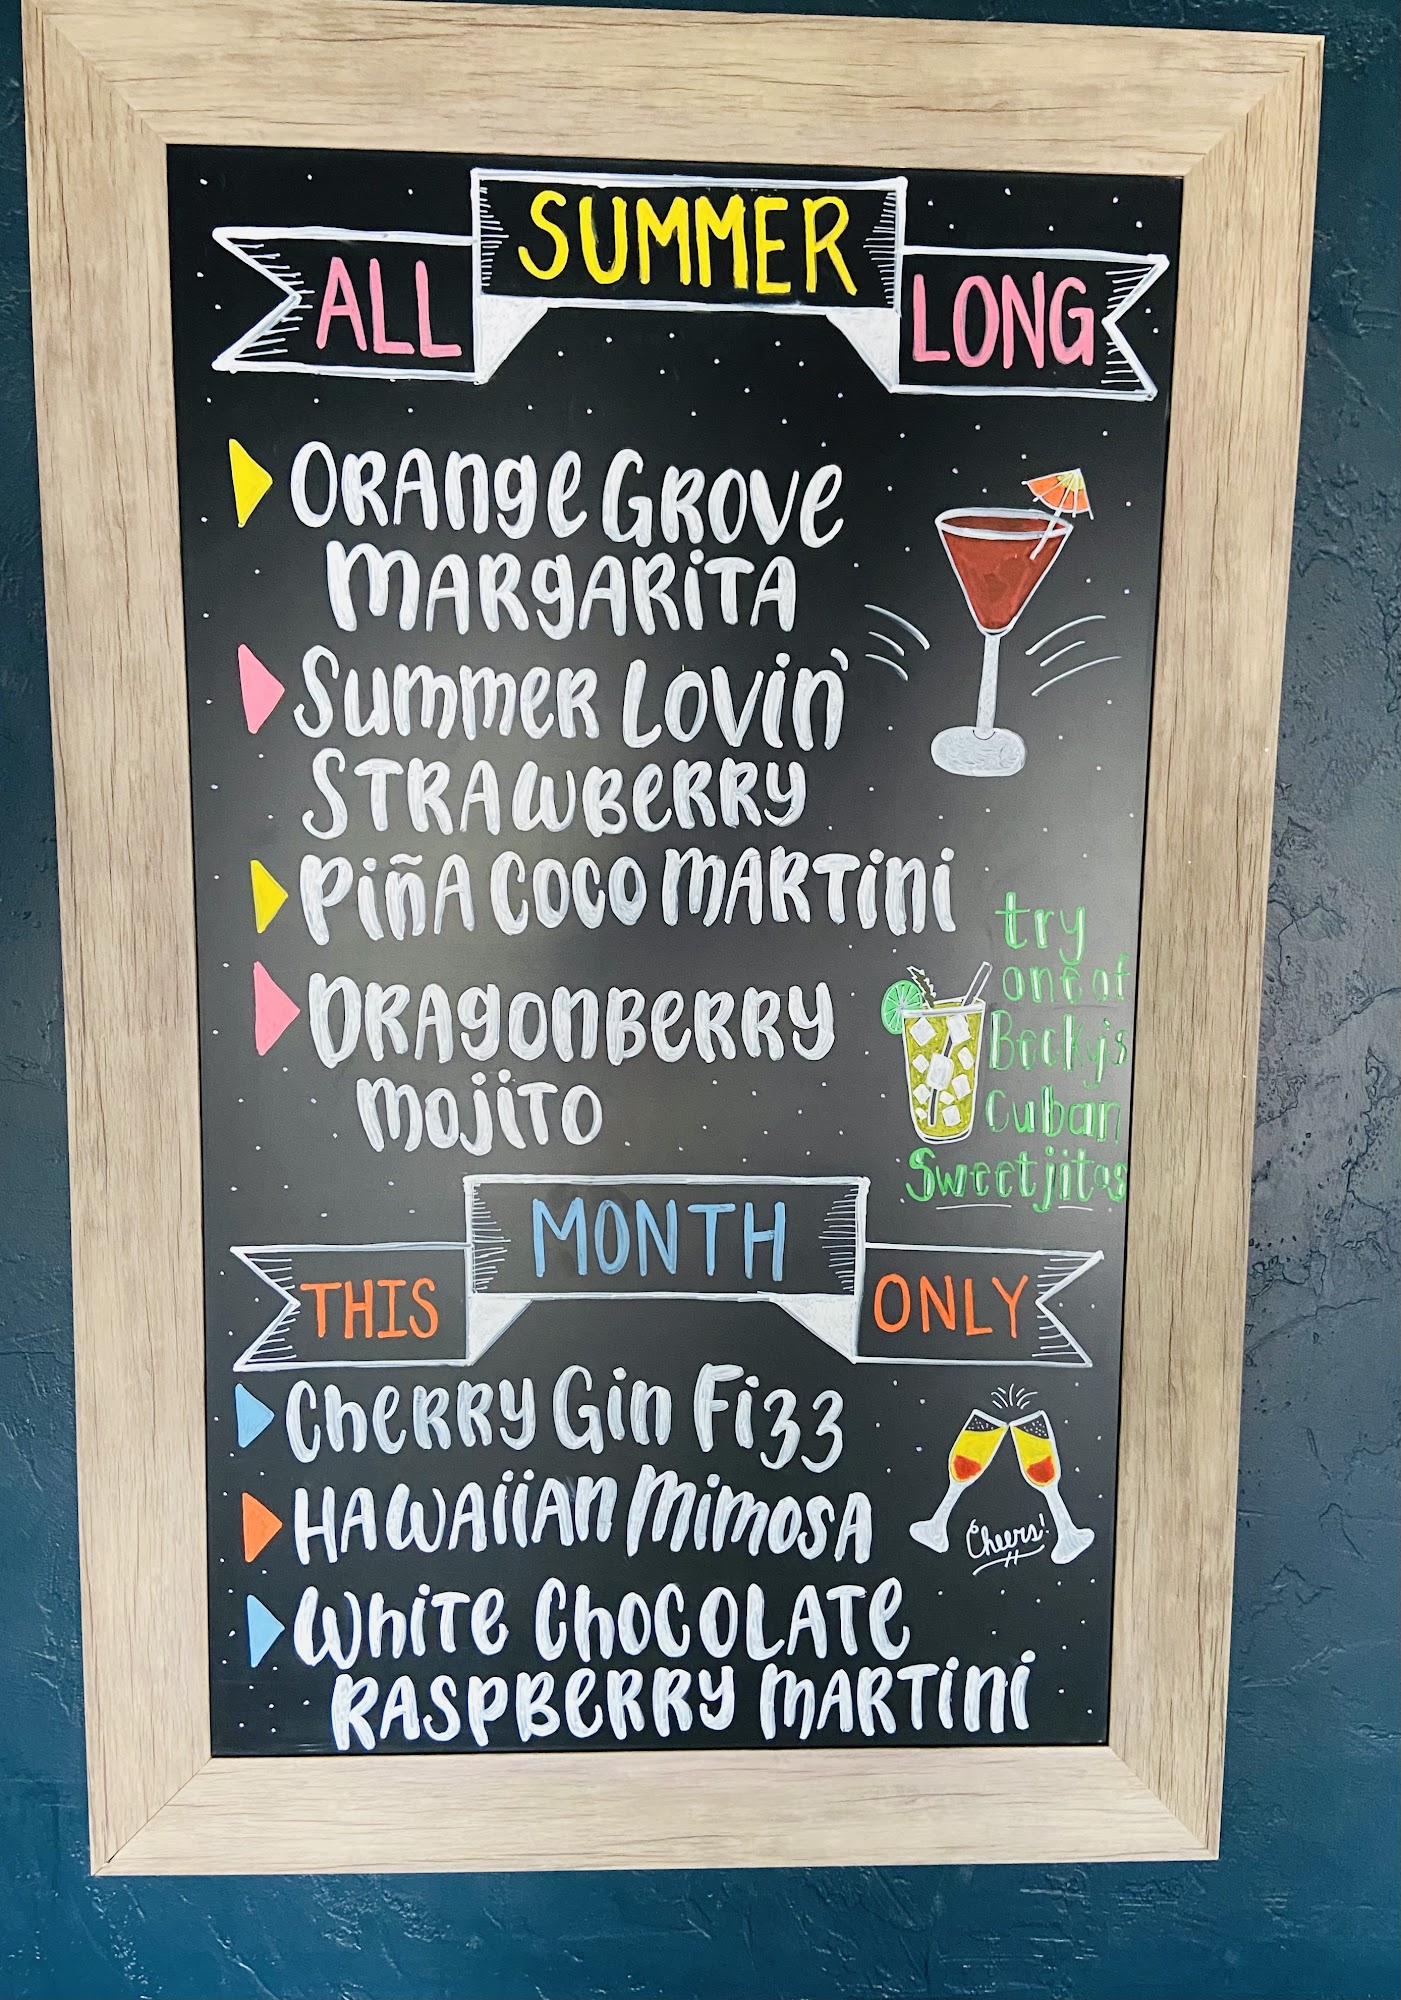 ALL SUMMER LONG
ORANGE GROVE
MARGARITA
SUMMER LOVIN'
STRAWBERRY
PIÑA COCO MARTINI
DRAGONBERRY
MOJITO
try
one of
Becky's
Cuban
Sweetjitos
THIS MONTH ONLY
CHERRY GIN FIZZ
HAWAIIAN MIMOSA
Cheers!
WHITE CHOCOLATE
RASPBERRY MARTINI